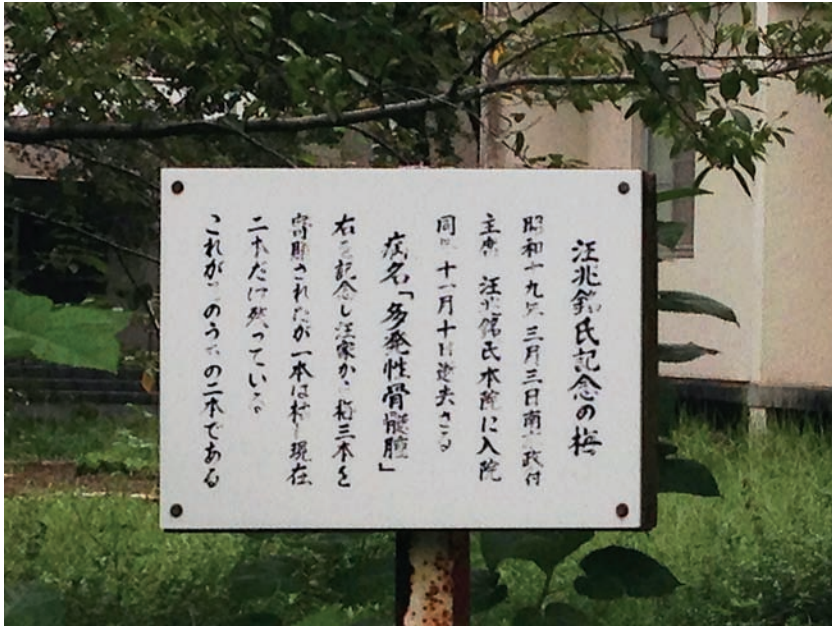 汪兆銘氏記念の梅
昭和十九年三月三日南 政付
主席 汪兆銘氏本院に入院
同年十一月十日逝去さる
病名「多発性骨髄腫」
右を記念し汪家から梅三本を
寄贈されたが一本は枯れ現在
二本だけ残っている
これがそのうちの二本である